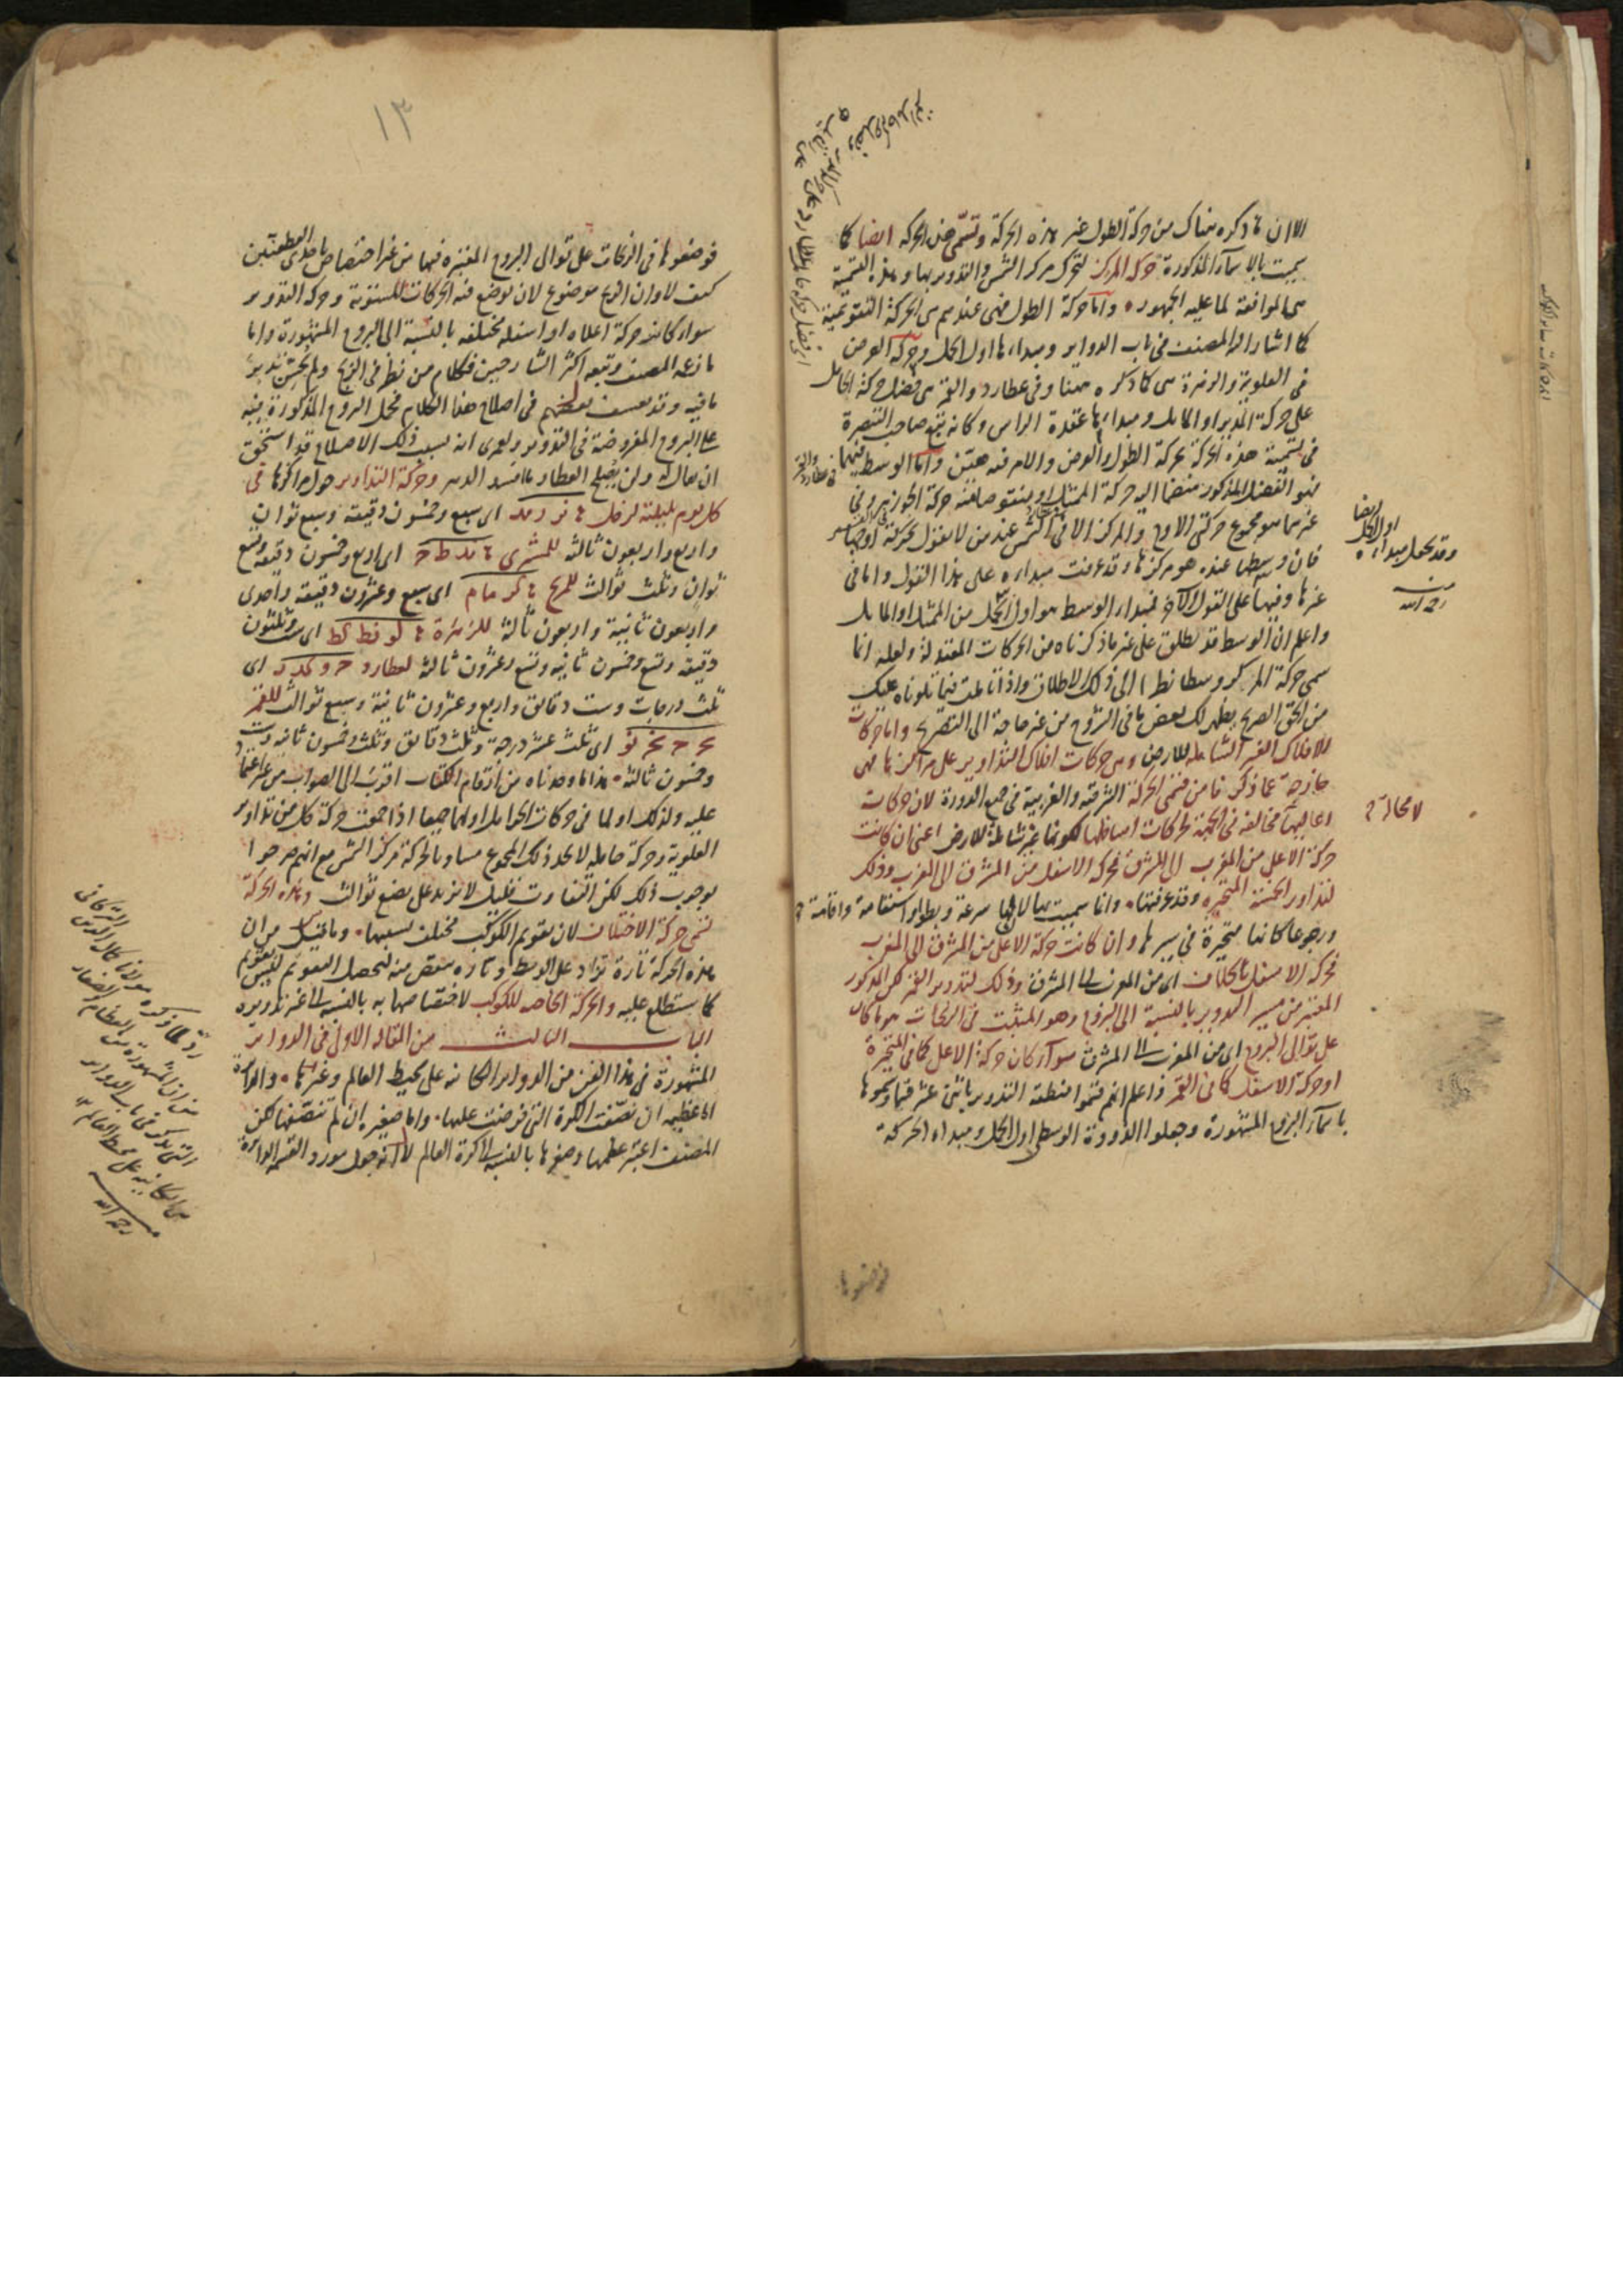 الا ان ما ذكره هناك من حركة الطول غير هذه الحركة وتسمى هذه الحركة ايضا كما
سميت بالاسماء المذكورة حركة المركز لتحرك مركز الشمس والتدوير بها وهذه التسمية
هي الموافقة لما عليه الجمهور واما حركة الطول فهي عندهم هي الحركة التقويمية
كما اشار اليه المصنف في باب الدواير ومبداءها اول الحمل وحركة العرض
في العلوية والزهرة هي كما ذكره ههنا وفي عطارد والقمر هي فضل حركة الحامل
على حركة المدير او المايل ومبداءها عقدة الراس وكانه تبع صاحب التبصرة
في تسمية هذه الحركة بحركة الطول والعرض والامر فيه هين واما الوسط فيهما
فهو الفضل المذكور منضما اليه حركة الممثل او ينتقص منه حركة الجوزهر وفي
غيرهما هو مجموع حركتي الاوج والمركز الا في الشمس عند من لا يقول بحركة اوجها
فان وسطها عنده هو مركزها وقد عرفت مبداءه على هذا القول واما في
غيرها وفيها على القول الآخر فمبداء الوسط هو اول الحمل من الممثل او المايل
واعلم ان الوسط قد يطلق على غير ما ذكرناه من الحركات المعتدلة ولعله انما
سمي حركة المركز وسطا نظرا الى ذلك الاطلاق واذا تاملت فيما تلوناه عليك
من الحق الصريح يظهر لك بعض ما في الشروح من غير حاجة الى التصريح واما حركات
الافلاك الغير الشاملة للارض وهي حركات افلاك التداوير على مراكزها فهي
خارجة عما ذكرنا من قسمي الحركة الشرقية والغربية في جميع الدورة لان حركات
اعاليها مخالفة في الجهة لحركات اسافلها لكونها غير شاملة للارض اعني ان كانت
حركة الاعلى من المغرب الى المشرق فحركة الاسفل من المشرق الى المغرب وذلك
لتداوير الخمسة المتحيرة وقد عرفتها وانما سميت بها لان لها سرعة وبطوءا واستقامة واقامة
ورجوعا كانها متحيرة في سيرها وان كانت حركة الاعلى من المشرق الى المغرب
فحركة الاسفل بالخلاف اي من المغرب الى المشرق وذلك لتدوير القمر لكن المذكور
المعتبر من مسير التدوير بالنسبة الى البروج وهو المثبت في الزيجات هو ما كان
على توالي البروج اي من المغرب الى المشرق سواء كان حركة الاعلى كما في المتحيرة
او حركة الاسفل كما في القمر واعلم انهم قسموا منطقة التدوير باثني عشر قسما وسموها
باسماء البروج المشهورة وجعلوا الذروة الوسطى اول الحمل ومبداء الحركة
وقد يجعل مبداءه اول الحمل ايضا
منه
رحمه الله
لا محالة
فوضعوها
١٣
فوضعوها في الزيجات على توالي البروج المعتبرة فيها من غير اختصاص باحدى القطعتين
كيف لا وان الزيج موضوع لان يوضع فيه الحركات المستوية وحركة التدوير
سواء كانت حركة اعلاه او اسفله مختلفة بالنسبة الى البروج المشهورة واما
ما زعمه المصنف وتبعه اكثر الشارحين فكلام من نظر في الزيج ولم يحسن تدبر
ما فيه وقد تعسف بعضهم في اصلاح هذا الكلام فحمل البروج المذكورة فيه
على البروج المفروضة في التدوير ولعمري انه بسبب ذلك الاصلاح قد استحق
ان يقال له ولن يصلح العطار ما افسد الدهر وحركة التداوير حول مراكزها في
كل يوم بليلته لزحل ٠ نز ز مد اي سبع وخمسون دقيقة وسبع ثوان
واربع واربعون ثالثة للمشتري ٠ ند ط ج اي اربع وخمسون دقيقة وتسع
ثوان وثلث ثوالث للمريخ ٠ كز ما م اي سبع وعشرون دقيقة واحدى
واربعون ثانية واربعون ثالثة للزهرة ٠ لو نط كط اي ست وثلثون
دقيقة وتسع وخمسون ثانية وتسع وعشرون ثالثة لعطارد ج و كد ز اي
ثلث درجات وست دقائق واربع وعشرون ثانية وسبع ثوالث للقمر
يج ج نج نو اي ثلث عشر درجة وثلث دقائق وثلث وخمسون ثانية وست
وخمسون ثالثة هذا ما وجدناه من ارقام الكتاب اقرب الى الصواب من غير اعتماد
عليه ولذلك او لما في حركات الحوامل او لهما جميعا اذا جمعت حركة كل من تداوير
العلوية وحركة حامله لا يجد ذلك المجموع مساويا لحركة مركز الشمس مع انهم صرحوا
بوجوب ذلك لكن التفاوت قليل لا يزيد على بضع ثوالث وهذه الحركة
تسمى حركة الاختلاف لان تقويم الكوكب مختلف بسببها وما قيل من ان
هذه الحركة تارة تزاد على الوسط وتارة تنقص منه ليحصل التقويم فليس بقويم
كما ستطلع عليه والحركة الخاصة للكوكب لاختصاصها به بالنسبة الى غير تدويره
الباب الثالث من المقالة الاولى في الدواير
المشهورة في هذا الفن من الدواير الكائنة على محيط العالم وغيرها والدائرة
اما عظيمة ان نصفت الكرة التي فرضت عليها واما صغيرة ان لم تنصفها لكن
المصنف اعتبر عظمها وصغرها بالنسبة الى كرة العالم لا انه جعل مورد القسمة الدائرة
رد لما ذكره مولانا كمال الدين التركماني
من ان المشهورة من العظام والصغار
التي تذكر في باب الدواير
هي الكائنة على محيط العالم
منه
رحمه الله